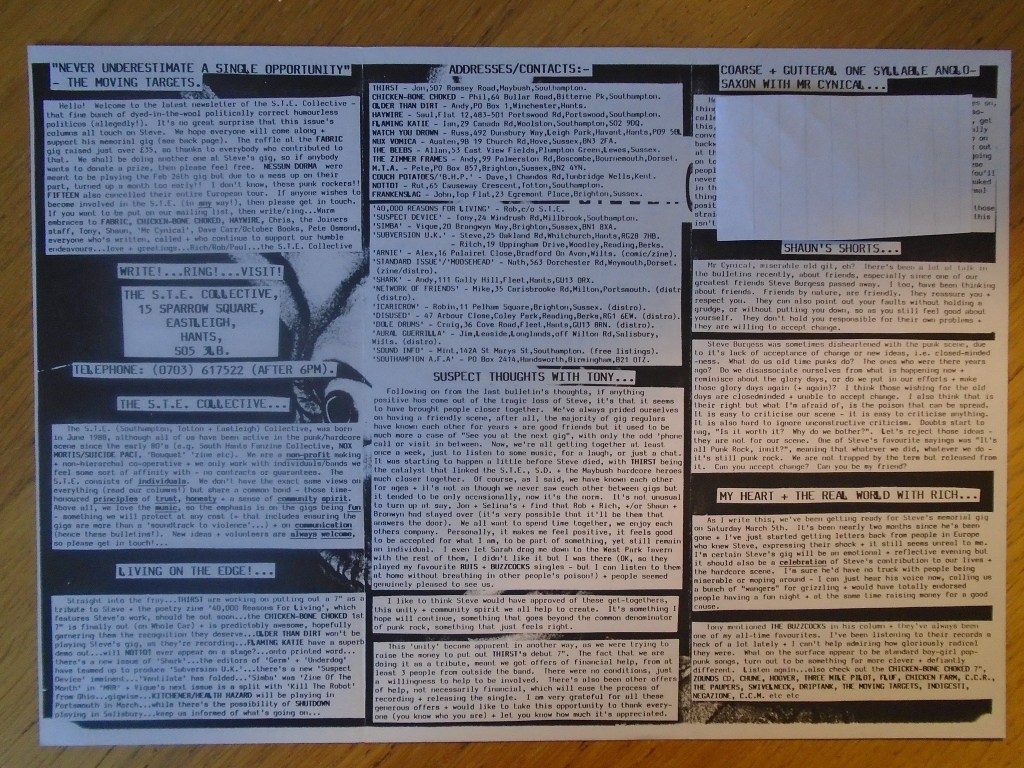 "NEVER UNDERESTIMATE A SINGLE OPPORTUNITY"
- THE MOVING TARGETS.
Hello! Welcome to the latest newsletter of the S.T.E. Collective -
that fine bunch of dyed-in-the-wool politically correct humourless
politicos (allegedly!). It's no great surprise that this issue's
columns all touch on Steve. We hope everyone will come along +
support his memorial gig (see back page). The raffle at the FABRIC
gig raised just over £35, so thanks to everybody who contributed to
that. We shall be doing another one at Steve's gig, so if anybody
wants to donate a prize, then please feel free. NESSUN DORMA were
meant to be playing the Feb 24th gig but due to a mess up on their
part, turned up a month too early!! I don't know, these punk rockers!!
FIFTEEN also cancelled their entire European tour. If anyone wishes to
become involved in the S.T.E. (in any way!), then please get in touch.
If you want to be put on our mailing list, then write/ring...Warm
embraces to FABRIC, CHICKEN-BONE CHOKED, HAYWIRE, Chris, the Joiners
staff, Tony, Shaun, 'Mr Cynical', Dave Carr/October Books, Pete Osmond,
everyone who's written, called + who continue to support our humble
endeavours...love + greetings...Rich/Rob/Paul...the S.T.E. Collective
WRITE!...RING!...VISIT!
THE S.T.E. COLLECTIVE,
15 SPARROW SQUARE,
EASTLEIGH,
HANTS,
SO5 3LB.
TELEPHONE: (0703) 617522 (AFTER 6PM).
THE S.T.E. COLLECTIVE...
The S.T.E. (Southampton, Totton + Eastleigh) Collective, was born
in June 1988, although all of us have been active in the punk/hardcore
scene since the early 80's (e.g. South Hants Fanzine Collective, NOX
MORTIS/SUICIDE PACT, 'Bouquet' zine etc). We are a non-profit making
+ non-hierarchal co-operative + we only work with individuals/bands we
feel some sort of affinity with - no contracts, guarantees etc. The
S.T.E. consists of individuals. We don't have the exact same views on
everything (read our columns!) but share a common bond - those time-
honoured principles of trust, honesty + a sense of community spirit.
Above all, we love the music, so the emphasis on the gigs being fun
- something we will protect at any cost (+ that includes ensuring the
gigs are more than a 'soundtrack to violence'...) + on communication
(hence these bulletins!). New ideas + volunteers are always welcome,
so please get in touch!...
LIVING ON THE EDGE!...
Straight into the fray...THIRST are working on putting out a 7" as a
tribute to Steve + the poetry zine '40,000 Reasons For Living', which
features Steve's work, should be out soon...the CHICKEN-BONE CHOKED 1st
7" is finally out (on Whole Car) + is predictably awesome, hopefully
garnering them the recognition they deserve...OLDER THAN DIRT won't be
playing Steve's gig, as they're recording...FLAMING KATIE have a superb
demo out...will NOTTOT ever appear on a stage?...onto printed word...
there's a new issue of 'Shark'...the editors of 'Germ' + 'Underdog'
have teamed up to produce 'Subversion U.K.'...there's a new 'Suspect
Device' imminent...'Ventilate' has folded...'Simba' was 'Zine Of The
Month' in 'MRR' + Vique's next issue is a split with 'Kill The Robot'
from Ohio...gigwise...KITCHENER/HEALTH HAZARD will be playing in
Portsmouth in March...while there's the possibility of SHUTDOWN
playing in Salisbury...keep us informed of what's going on...
ADDRESSES/CONTACTS:-
THIRST - Jon,507 Romsey Road,Maybush,Southampton.
CHICKEN-BONE CHOKED - Phil,64 Bullar Road,Bitterne Pk,Southampton.
OLDER THAN DIRT - Andy,PO Box 1,Winchester,Hants.
HAYWIRE - Saul,Flat 12,483-501 Portswood Rd,Portswood,Southampton.
FLAMING KATIE - Ian,29 Canada Rd,Woolston,Southampton,SO2 9DQ.
WATCH YOU DROWN - Russ,492 Dunsbury Way,Leigh Park,Havant,Hants,PO9 5BL
NUX VOMICA - Austen,9B 19 Church Rd,Hove,Sussex,BN3 2FA.
THE BEEBS - Allan,53 East View Fields,Plumpton Green,Lewes,Sussex.
THE ZIMMER FRAMES - Andy,99 Palmerston Rd,Boscombe,Bournemouth,Dorset.
M.T.A. - Pete,PO Box 857,Brighton,Sussex,BN2 4YN.
COUCH POTATOES/'B.H.P.' - Dave,1 Chandos Rd,Tunbridge Wells,Kent.
NOTTOT - Rut,65 Causeway Crescent,Totton,Southampton.
FRANKENSLAG - John,Top Flat,23 Egremont Place,Brighton,Sussex.
'40,000 REASONS FOR LIVING' - Rob,c/o S.T.E.
'SUSPECT DEVICE' - Tony,24 Windrush Rd,Millbrook,Southampton.
'SIMBA' - Vique,20 Brangwyn Way,Brighton,Sussex,BN1 8XA.
'SUBVERSION U.K.' - Steve,25 Oakland Rd,Whitchurch,Hants,RG28 7HB.
- Ritch,19 Uppingham Drive,Woodley,Reading,Berks.
'ARNIE' - Alex,16 Palairet Close,Bradford On Avon,Wilts. (comic/zine).
'STANDARD ISSUE'/'MOOSEHEAD' - Nath,563 Dorchester Rd,Weymouth,Dorset.
(zine/distro).
'SHARK' - Andy,111 Gally Hill,Fleet,Hants,GU13 0RX.
'NETWORK OF FRIENDS' - Mike,35 Carisbrooke Rd,Milton,Portsmouth. (distr
(distro).
'ICARICROW' - Robin,11 Pelham Square,Brighton,Sussex. (distro).
'DISUSED' - 47 Arbour Close,Coley Park,Reading,Berks,RG1 6EW. (distro).
'DOLE DRUMS' - Craig,36 Cove Road,Fleet,Hants,GU13 8RN. (distro).
'AURAL GUERRILLA' - Jim,Leaside,Longlands,off Wilton Rd,Salisbury,
Wilts. (distro).
'SOUND INFO' - Mint,142A St Marys St,Southampton. (free listings).
'SOUTHAMPTON A.F.A' - PO Box 2414,Handsworth,Birmingham,B21 0T7.
SUSPECT THOUGHTS WITH TONY...
Following on from the last bulletin's thoughts, if anything
positive has come out of the tragic loss of Steve, it's that it seems
to have brought people closer together. We've always prided ourselves
on having a friendly scene, after all, the majority of gig regulars
have known each other for years + are good friends but it used to be
much more a case of "See you at the next gig", with only the odd 'phone
call or visit in between. Now, we're all getting together at least
once a week, just to listen to some music, for a laugh, or just a chat.
It was starting to happen a little before Steve died, with THIRST being
the catalyst that linked the S.T.E., S.D. + the Maybush hardcore heroes
much closer together. Of course, as I said, we have known each other
for ages + it's not as though we never saw each other between gigs but
it tended to be only occasionally, now it's the norm. It's not unusual
to turn up at say, Jon + Selina's + find that Rob + Rich, +/or Shaun +
Bronwyn had stayed over (it's very possible that it'll be them that
answers the door). We all want to spend time together, we enjoy each
others company. Personally, it makes me feel positive, it feels good
to be accepted for what I am, to be part of something, yet still remain
an individual. I even let Sarah drag me down to the West Park Tavern
with the rest of them, I didn't like it but I was there (OK, so they
played my favourite RUTS + BUZZCOCKS singles - but I can listen to them
at home without breathing in other people's poison!) + people seemed
genuinely pleased to see us.
I like to think Steve would have approved of these get-togethers,
this unity + community spirit we all help to create. It's something I
hope will continue, something that goes beyond the common denominator
of punk rock, something that just feels right.
This 'unity' became apparent in another way, as we were trying to
raise the money to put out THIRST's debut 7". The fact that we are
doing it as a tribute, meant we got offers of financial help, from at
least 3 people from outside the band. There were no conditions, just
a willingness to help to be involved. There's also been other offers
of help, not necessarily financial, which will ease the process of
recording + releasing the single. I am very grateful for all these
generous offers + would like to take this opportunity to thank every-
one (you know who you are) + let you know how much it's appreciated.
COARSE + GUTTERAL ONE SYLLABLE ANGLO-
SAXON WITH MR CYNICAL...
SHAUN'S SHORTS...
Mr Cynical, miserable old git, eh? There's been a lot of talk in
the bulletins recently, about friends, especially since one of our
greatest friends Steve Burgess passed away. I too, have been thinking
about friends. Friends by nature, are friendly. They reassure you +
respect you. They can also point out your faults without holding a
grudge, or without putting you down, so as you still feel good about
yourself. They don't hold you responsible for their own problems +
they are willing to accept change.
Steve Burgess was sometimes disheartened with the punk scene, due
to it's lack of acceptance of change or new ideas, i.e. closed-minded
-ness. What do us old time punks do? The ones who were there years
ago? Do we disassociate ourselves from what is happening now +
reminisce about the glory days, or do we put in our efforts + make
those glory days again (+ again)? I think those wishing for the old
days are closedminded + unable to accept change. I also think that is
their right but what I'm afraid of, is the poison that can be spread.
It is easy to criticise our scene - it is easy to criticise anything.
It is also hard to ignore unconstructive criticism. Doubts start to
nag, "Is it worth it? Why do we bother?". Let's reject those ideas -
they are not for our scene. One of Steve's favourite sayings was "It's
all Punk Rock, innit?", meaning that whatever we did, whatever we do -
it's still punk rock. We are not trapped by the term but released from
it. Can you accept change? Can you be my friend?
MY HEART + THE REAL WORLD WITH RICH...
As I write this, we've been getting ready for Steve's memorial gig
on Saturday March 5th. It's been nearly two months since he's been
gone + I've just started getting letters back from people in Europe
who knew Steve, expressing their shock + it still seems unreal to me.
I'm certain Steve's gig will be an emotional + reflective evening but
it should also be a celebration of Steve's contribution to our lives +
the hardcore scene. I'm sure he'd have no truck with people being
miserable or moping around - I can just hear his voice now, calling us
a bunch of "wangers" for grizzling + would have totally endorsed
people having a fun night + at the same time raising money for a good
cause.
Tony mentioned THE BUZZCOCKS in his column + they've always been
one of my all-time favourites. I've been listening to their records a
heck of a lot lately + I can't help admiring how gloriously radical
they were. What on the surface appear to be standard boy-girl pop-
punk songs, turn out to be something far more clever + defiantly
different. Listen again...also check out the CHICKEN-BONE CHOKED 7",
ZOUNDS CD, CHUNE, HOOVER, THREE MILE PILOT, FLUF, CHICKEN FARM, C.C.R.,
THE PAUPERS, SWIVELNECK, DRIPTANK, THE MOVING TARGETS, INDIGESTI,
NEGAZIONE, C.C.M. etc etc